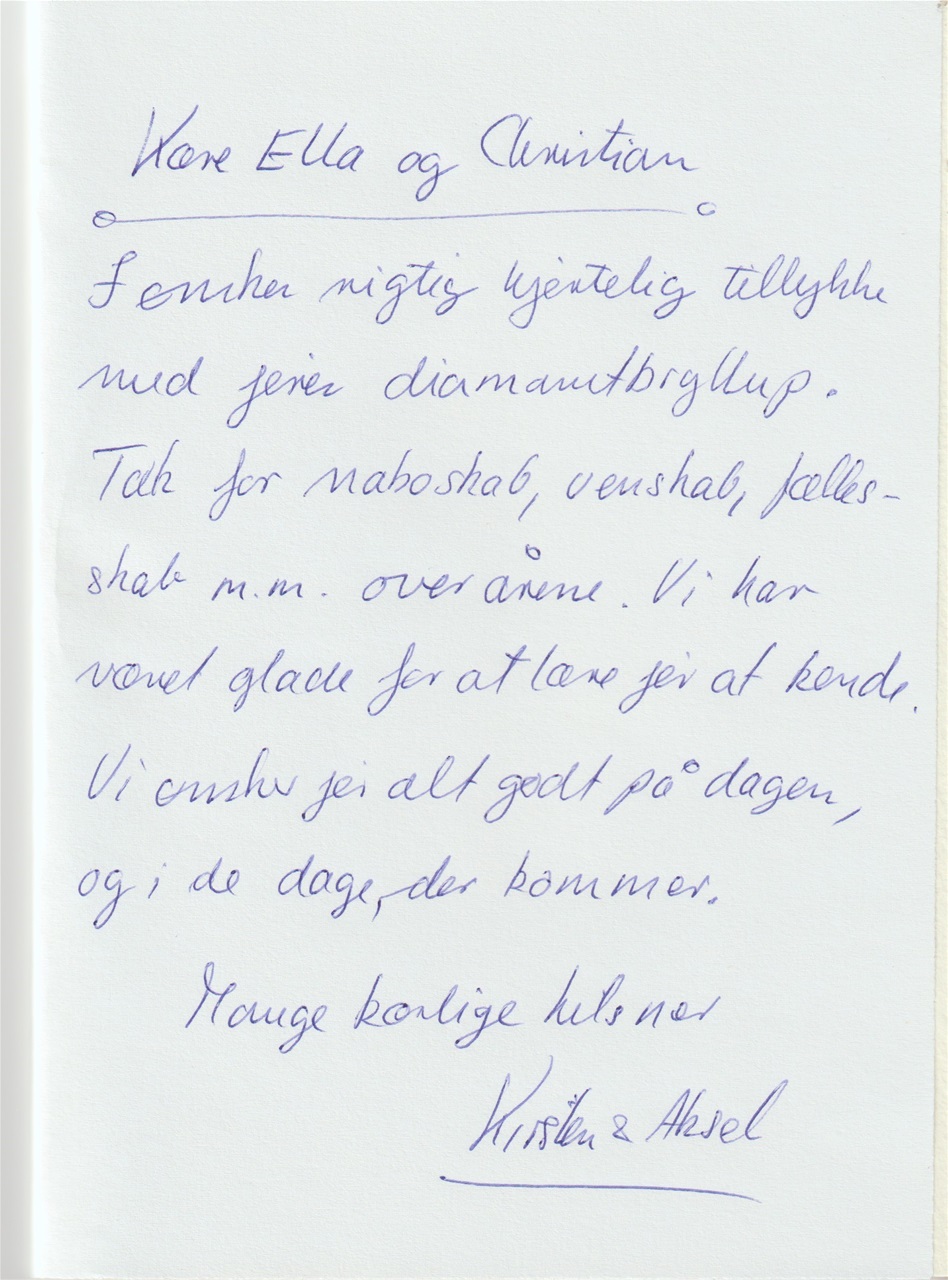 Kære Ella og Christian
I ønskes rigtig hjertelig tillykke
med jeres diamantbryllup.
Tak for naboskab, venskab, fælles-
skab m.m. over årene. Vi har
været glade for at lære jer at kende.
Vi ønsker jer alt godt på dagen,
og i de dage, der kommer.
Mange kærlige hilsner
Kirsten & Aksel